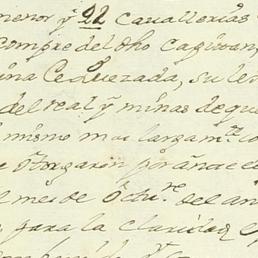 menor y 22 cavallerias
compre del dho capitan
ina de Quezada, su le
del real y minas de gu
mismo mas largam.te co
e otorgaron por ante e
l mes de Octu.re del añ
para la claridad